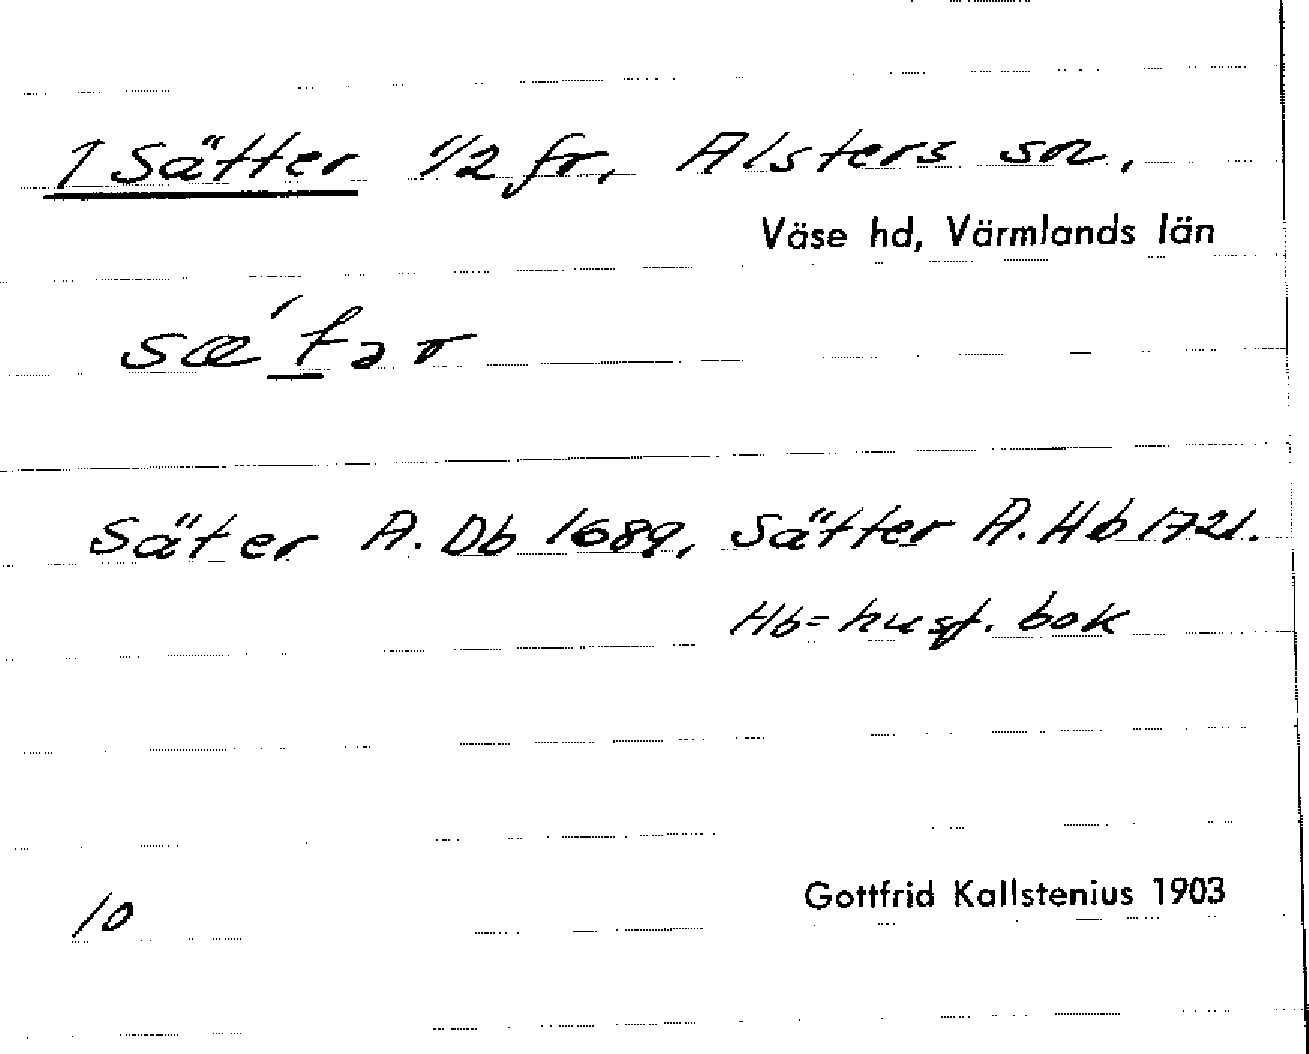 1 Sätter 1/2 fr, Alsters sn,
Väse hd, Värmlands län
sæ´tər
Säter A. Db 1689, Sätter A. Hb 1721.
Hb = husf. bok
Gottfrid Kallstenius 1903
10